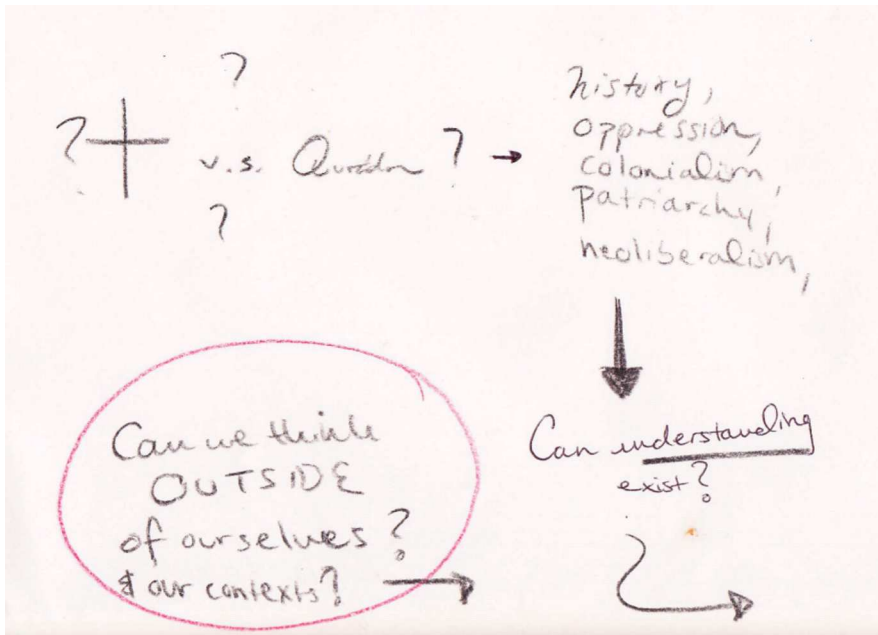 ?
? v.s. ? →
?
history,
oppression,
colonialism,
patriarchy,
neoliberalism,
Can understanding
exist?
Can we think
OUTSIDE
of ourselves?
& our contexts?